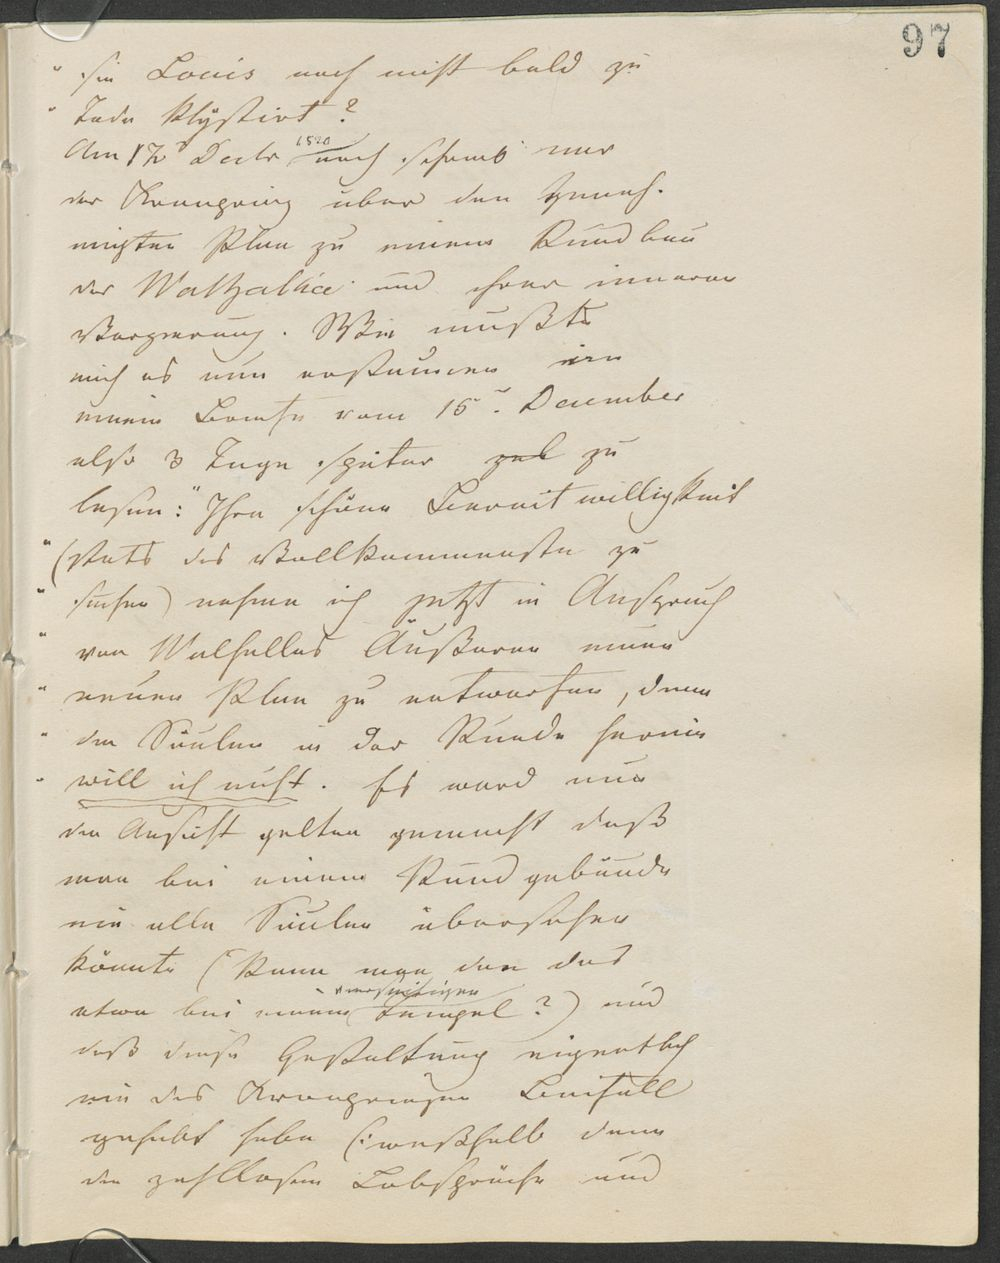 97
" sie Louis noch nicht bald zu
" Tode klÿstirt?
Am 12t Decbr 1820 noch schrieb mir
der Kronprinz über den geneh-
migten Plan zu einem Rundbau
der Walhalla und ihrer inneren
Verzierung. Wie mußte
mich es nun erstaunen in
einem Briefe vom 15t. December
also 3 Tage später zu
lesen: "Ihre schöne Bereitwilligkeit
" (stets das Vollkommenste zu
" suchen) nehme ich jetzt in Anspruch
" von Walhallas Äußeren einen
" neuen Plan zu entwerfen, denn
" die Säulen in der Runde herum
" will ich nicht. Es ward nun
die Ansicht gelten gemacht daß
man bei einem Rundgebäude
nie alle Säulen übersehen
könnte (Kann man den das
etwa bei einem vierseitigen Tempel?) und
daß diese Gestaltung eigentlich
nie des Kronprinzen Beifall
gehabt habe (: weßhalb denn
die zahllosen Lobsprüche und